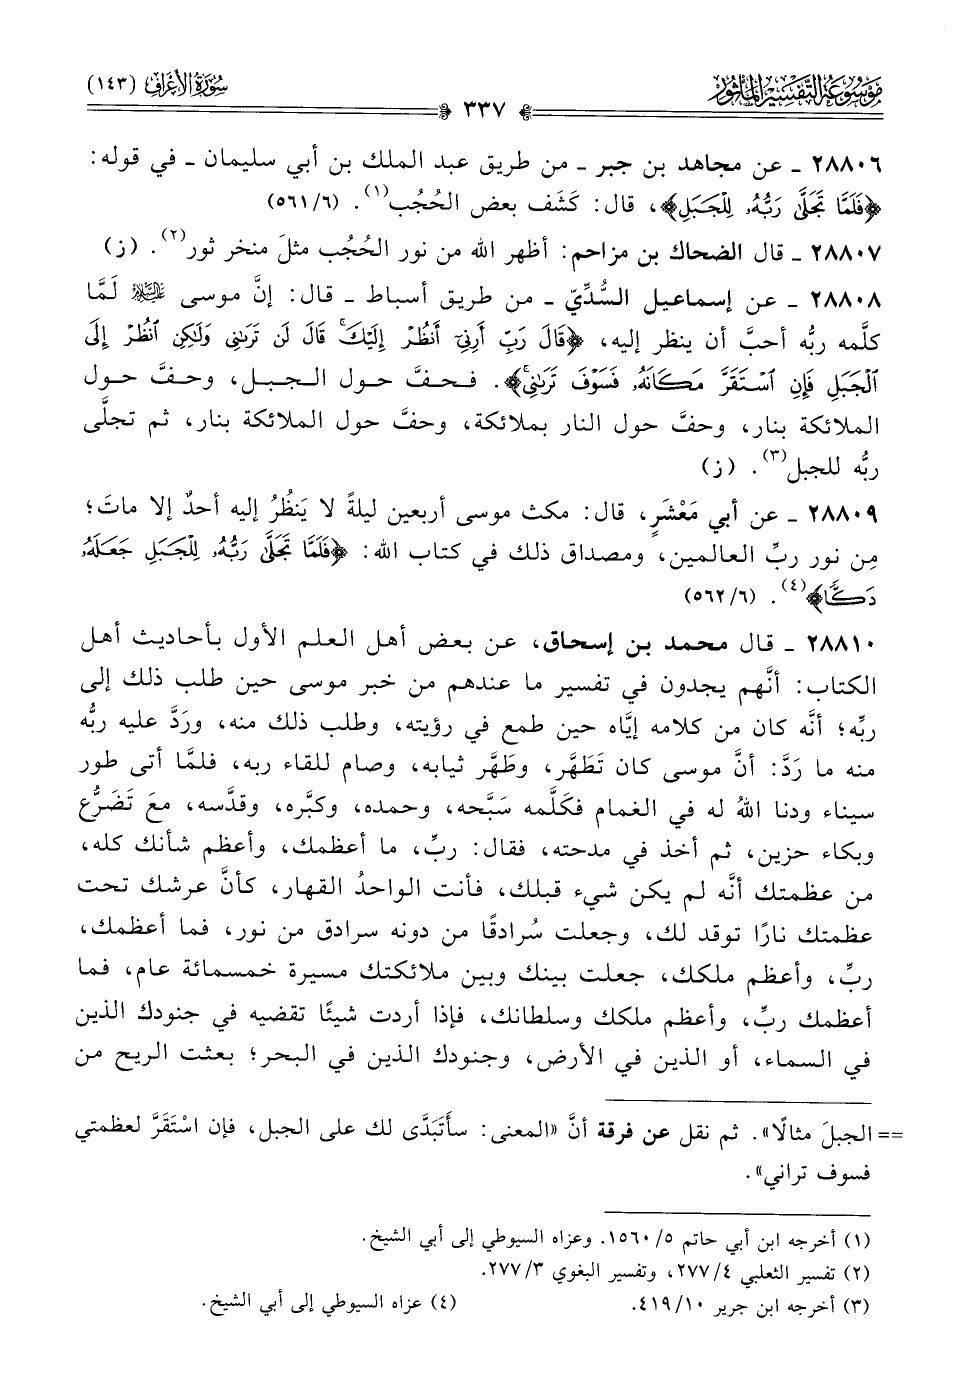 مَوْسُوعَة التَّفْسِير المَأْثُور
سُورَة الأَعْرَاف (١٤٣)
٣٣٧
٢٨٨٠٦ ـ عن مجاهد بن جبر ـ من طريق عبد الملك بن أبي سليمان ـ في قوله:
﴿فَلَمَّا تَجَلَّىٰ رَبُّهُۥ لِلْجَبَلِ﴾، قال: كَشَف بعض الحُجُب(١). (٥٦١/٦)
٢٨٨٠٧ ـ قال الضحاك بن مزاحم: أظهر الله من نور الحُجُب مثلَ منخر ثور(٢). (ز)
٢٨٨٠٨ ـ عن إسماعيل السُّدِّيّ ـ من طريق أسباط ـ قال: إنَّ موسى عليه السلام لَمَّا
كلَّمه ربُّه أحبَّ أن ينظر إليه، ﴿قَالَ رَبِّ أَرِنِىٓ أَنظُرْ إِلَيْكَۚ قَالَ لَن تَرَىٰنِى وَلَٰكِنِ ٱنظُرْ إِلَى
ٱلْجَبَلِ فَإِنِ ٱسْتَقَرَّ مَكَانَهُۥ فَسَوْفَ تَرَىٰنِىۚ﴾. فحفَّ حول الجبل، وحفَّ حول
الملائكة بنار، وحفَّ حول النار بملائكة، وحفَّ حول الملائكة بنار، ثم تجلَّى
ربُّه للجبل(٣). (ز)
٢٨٨٠٩ ـ عن أبي مَعْشَرٍ، قال: مكث موسى أربعين ليلةً لا يَنظُرُ إليه أحدٌ إلا ماتَ؛
مِن نور ربِّ العالمين، ومصداق ذلك في كتاب الله: ﴿فَلَمَّا تَجَلَّىٰ رَبُّهُۥ لِلْجَبَلِ جَعَلَهُۥ
دَكًّا﴾(٤). (٥٦٢/٦)
٢٨٨١٠ ـ قال محمد بن إسحاق، عن بعض أهل العلم الأول بأحاديث أهل
الكتاب: أنَّهم يجدون في تفسير ما عندهم من خبر موسى حين طلب ذلك إلى
ربِّه؛ أنَّه كان من كلامه إيَّاه حين طمع في رؤيته، وطلب ذلك منه، وردَّ عليه ربُّه
منه ما رَدَّ: أنَّ موسى كان تَطَهَّر، وطَهَّر ثيابه، وصام للقاء ربه، فلمَّا أتى طور
سيناء ودنا اللهُ له في الغمام فكَلَّمه سَبَّحه، وحمده، وكبَّره، وقدَّسه، معَ تَضَرُّع
وبكاء حزين، ثم أخذ في مدحته، فقال: ربِّ، ما أعظمك، وأعظم شأنك كله،
من عظمتك أنَّه لم يكن شيء قبلك، فأنت الواحدُ القهار، كأنَّ عرشك تحت
عظمتك نارًا توقد لك، وجعلت سُرادقًا من دونه سرادق من نور، فما أعظمك،
ربِّ، وأعظم ملكك، جعلت بينك وبين ملائكتك مسيرة خمسمائة عام، فما
أعظمك ربِّ، وأعظم ملكك وسلطانك، فإذا أردت شيئًا تقضيه في جنودك الذين
في السماء، أو الذين في الأرض، وجنودك الذين في البحر؛ بعثت الريح من
== الجبلَ مثالًا». ثم نقل عن فرقة أنَّ «المعنى: سأَتَبَدَّى لك على الجبل، فإن اسْتَقَرَّ لعظمتي
فسوف تراني».
(١) أخرجه ابن أبي حاتم ١٥٦٠/٥. وعزاه السيوطي إلى أبي الشيخ.
(٢) تفسير الثعلبي ٢٧٧/٤، وتفسير البغوي ٢٧٧/٣.
(٣) أخرجه ابن جرير ٤١٩/١٠. (٤) عزاه السيوطي إلى أبي الشيخ.